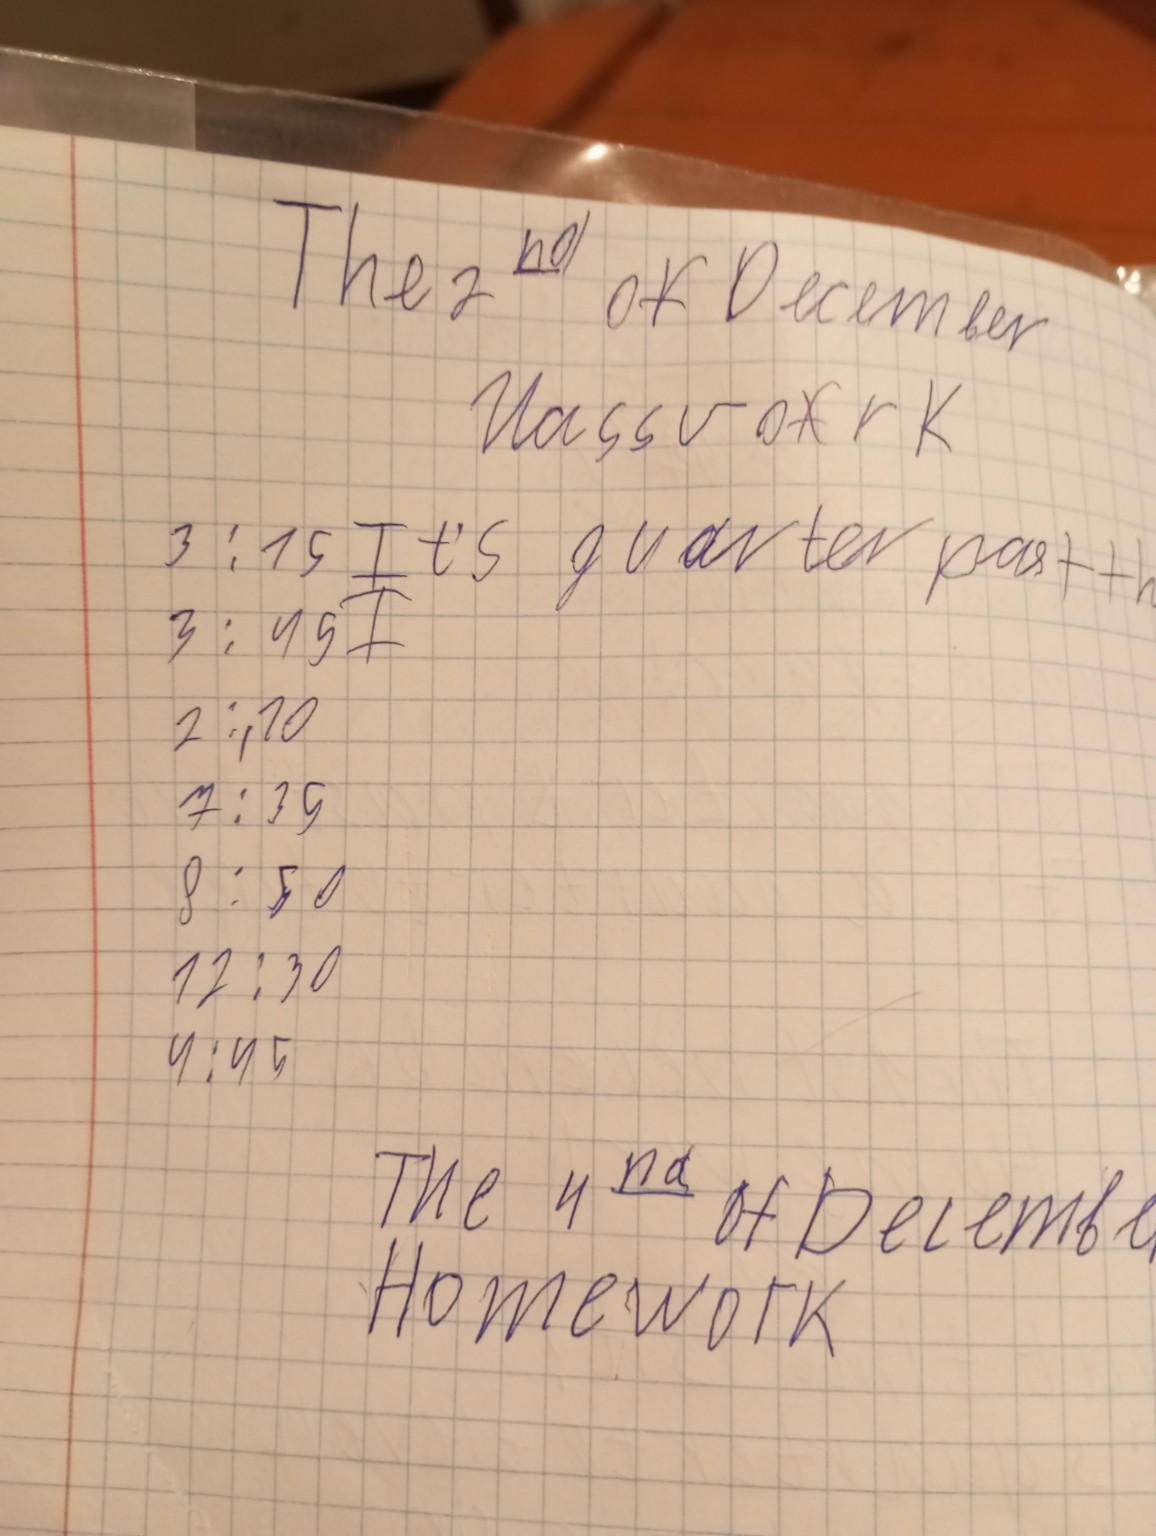 The 2nd of December
Classwork
3:15 It's quarter past th
3:45 I
2:10
7:35
8:50
12:30
4:45
The 4nd of December
Homework